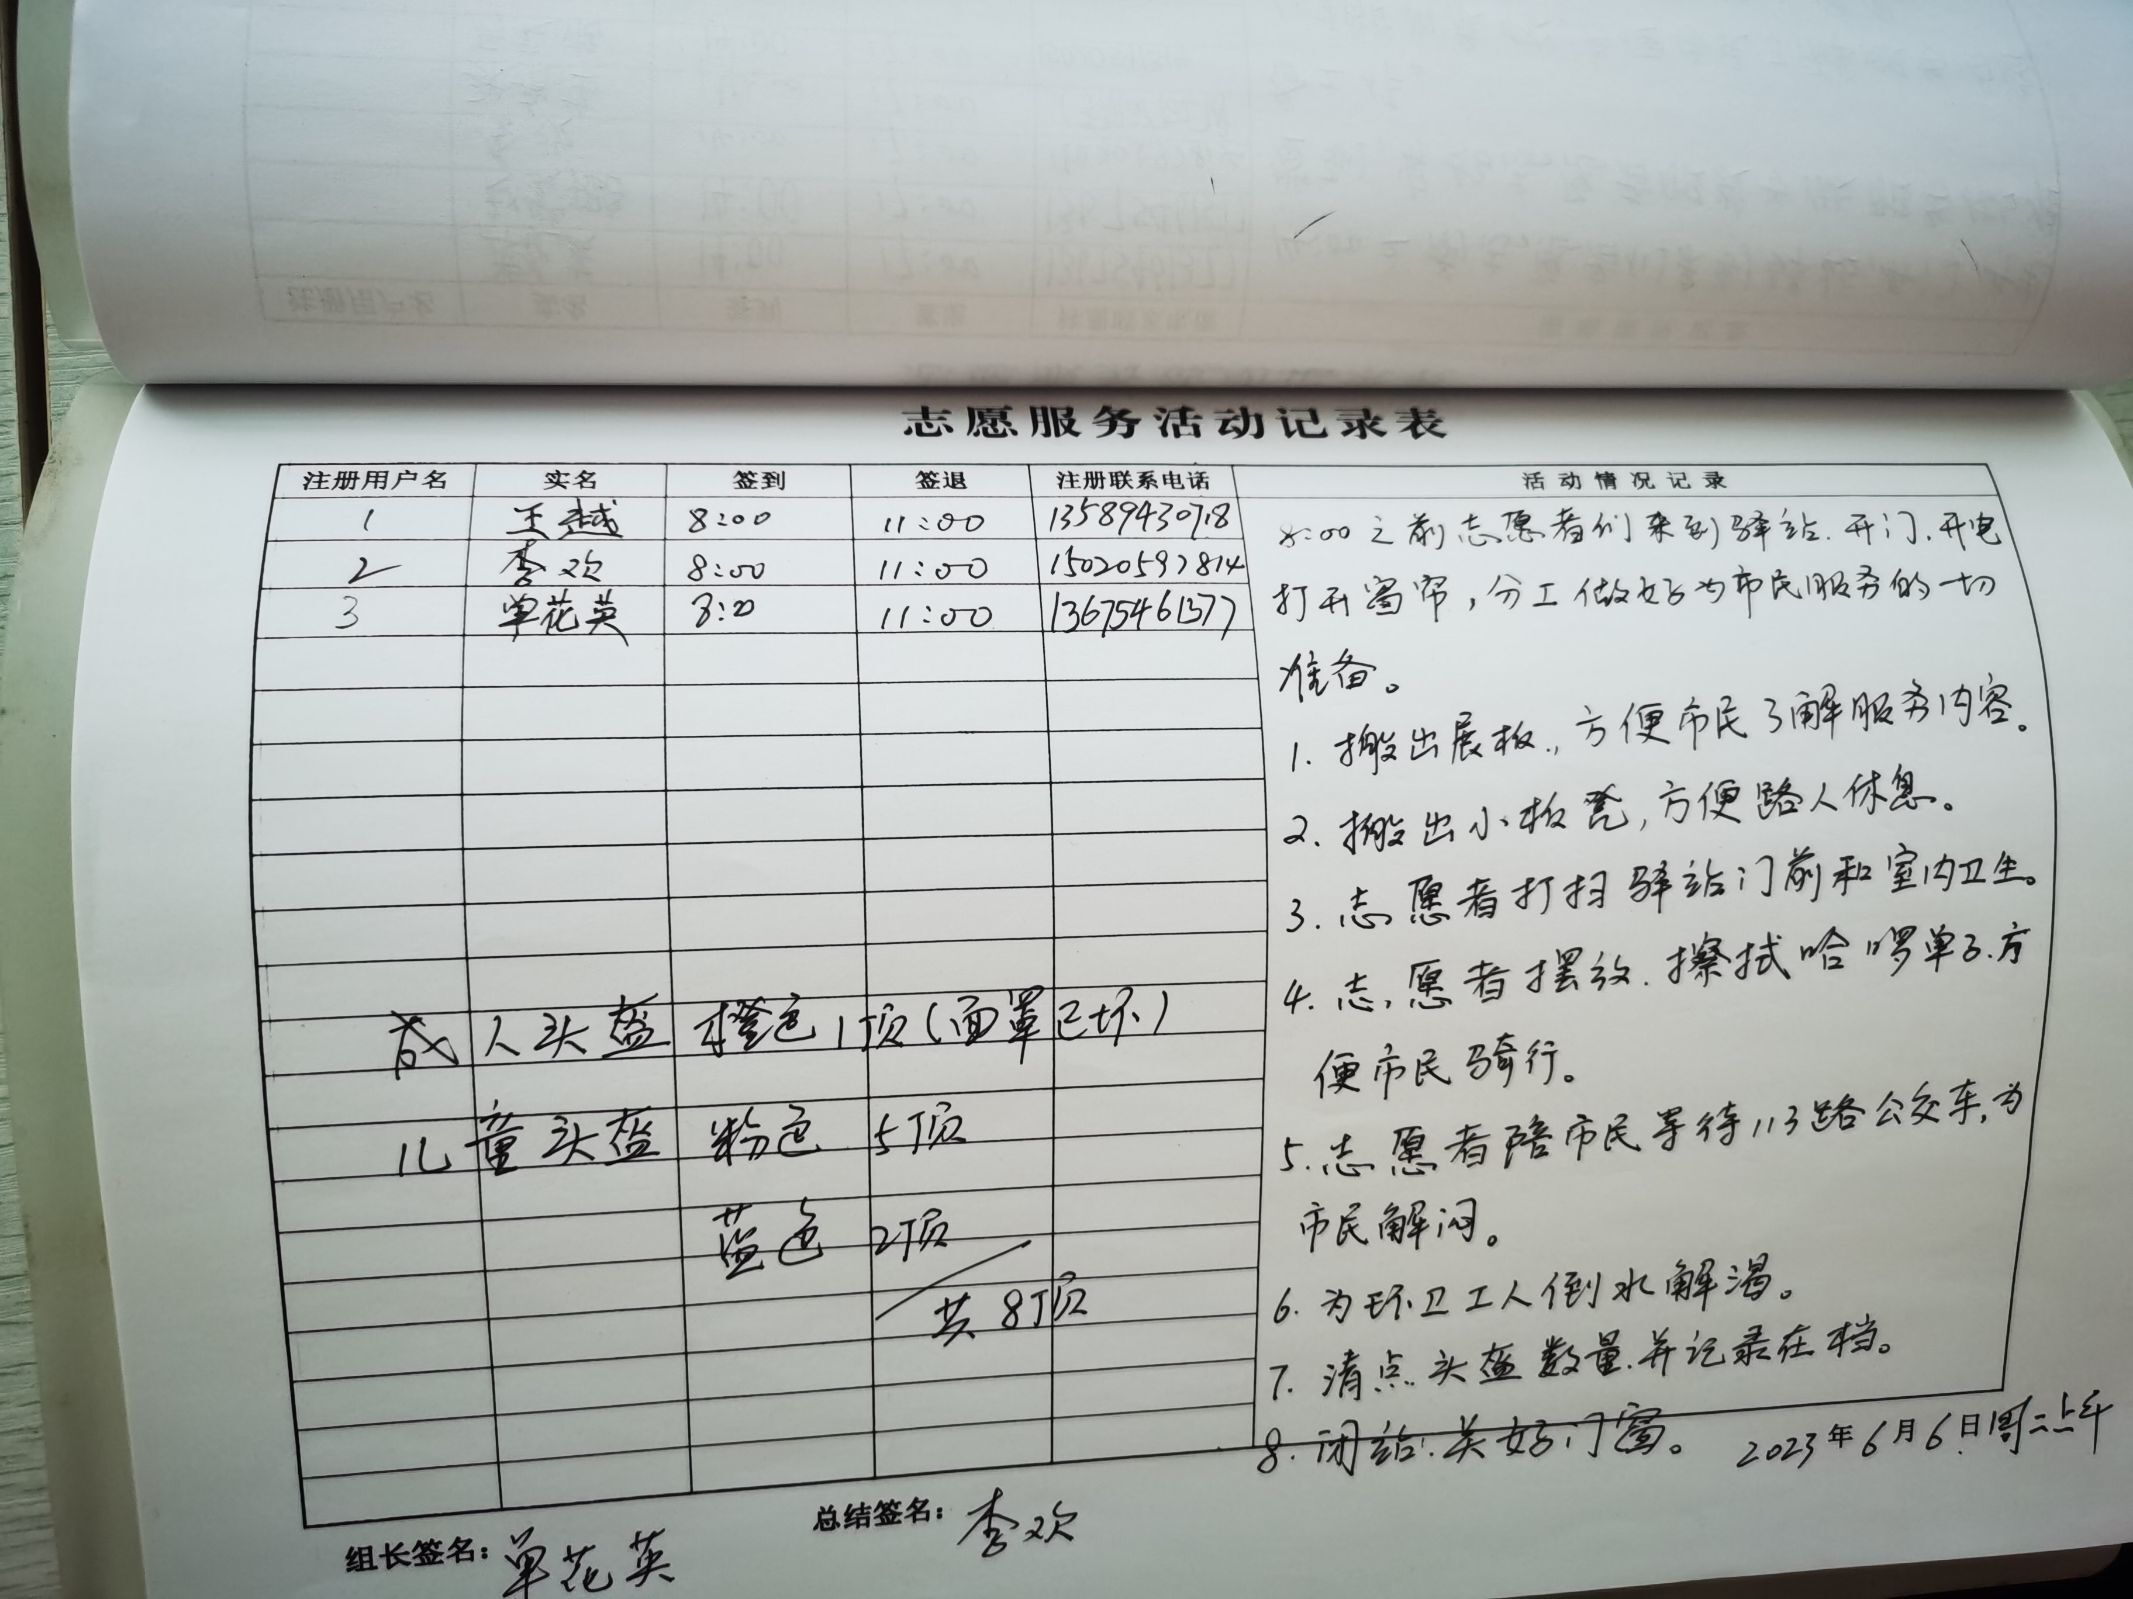 志愿服务活动记录表
注册用户名 实名 签到 签退 注册联系电话 活动情况记录
1 王越 8:00 11:00 13589430718
2 李欢 8:00 11:00 15020592814
3 单花英 8:00 11:00 13675461377
8:00之前志愿者们来到驿站.开门.开电
打开窗帘,分工做好为市民服务的一切
准备。
1.搬出展板.,方便市民了解服务内容。
2.搬出小板凳,方便路人休息。
3.志愿者打扫驿站门前和室内卫生。
4.志愿者摆放.擦拭哈啰单车.方
便市民骑行。
5.志愿者陪市民等待113路公交车,为
市民解闷。
6.为环卫工人倒水解渴。
7.清点头盔数量.并记录在档。
8.闭站.关好门窗。
2023年6月6日周二上午
成人头盔 橙色1顶(面罩已坏)
儿童头盔 粉色 5顶
蓝色 2顶
共8顶
组长签名:单花英
总结签名:李欢